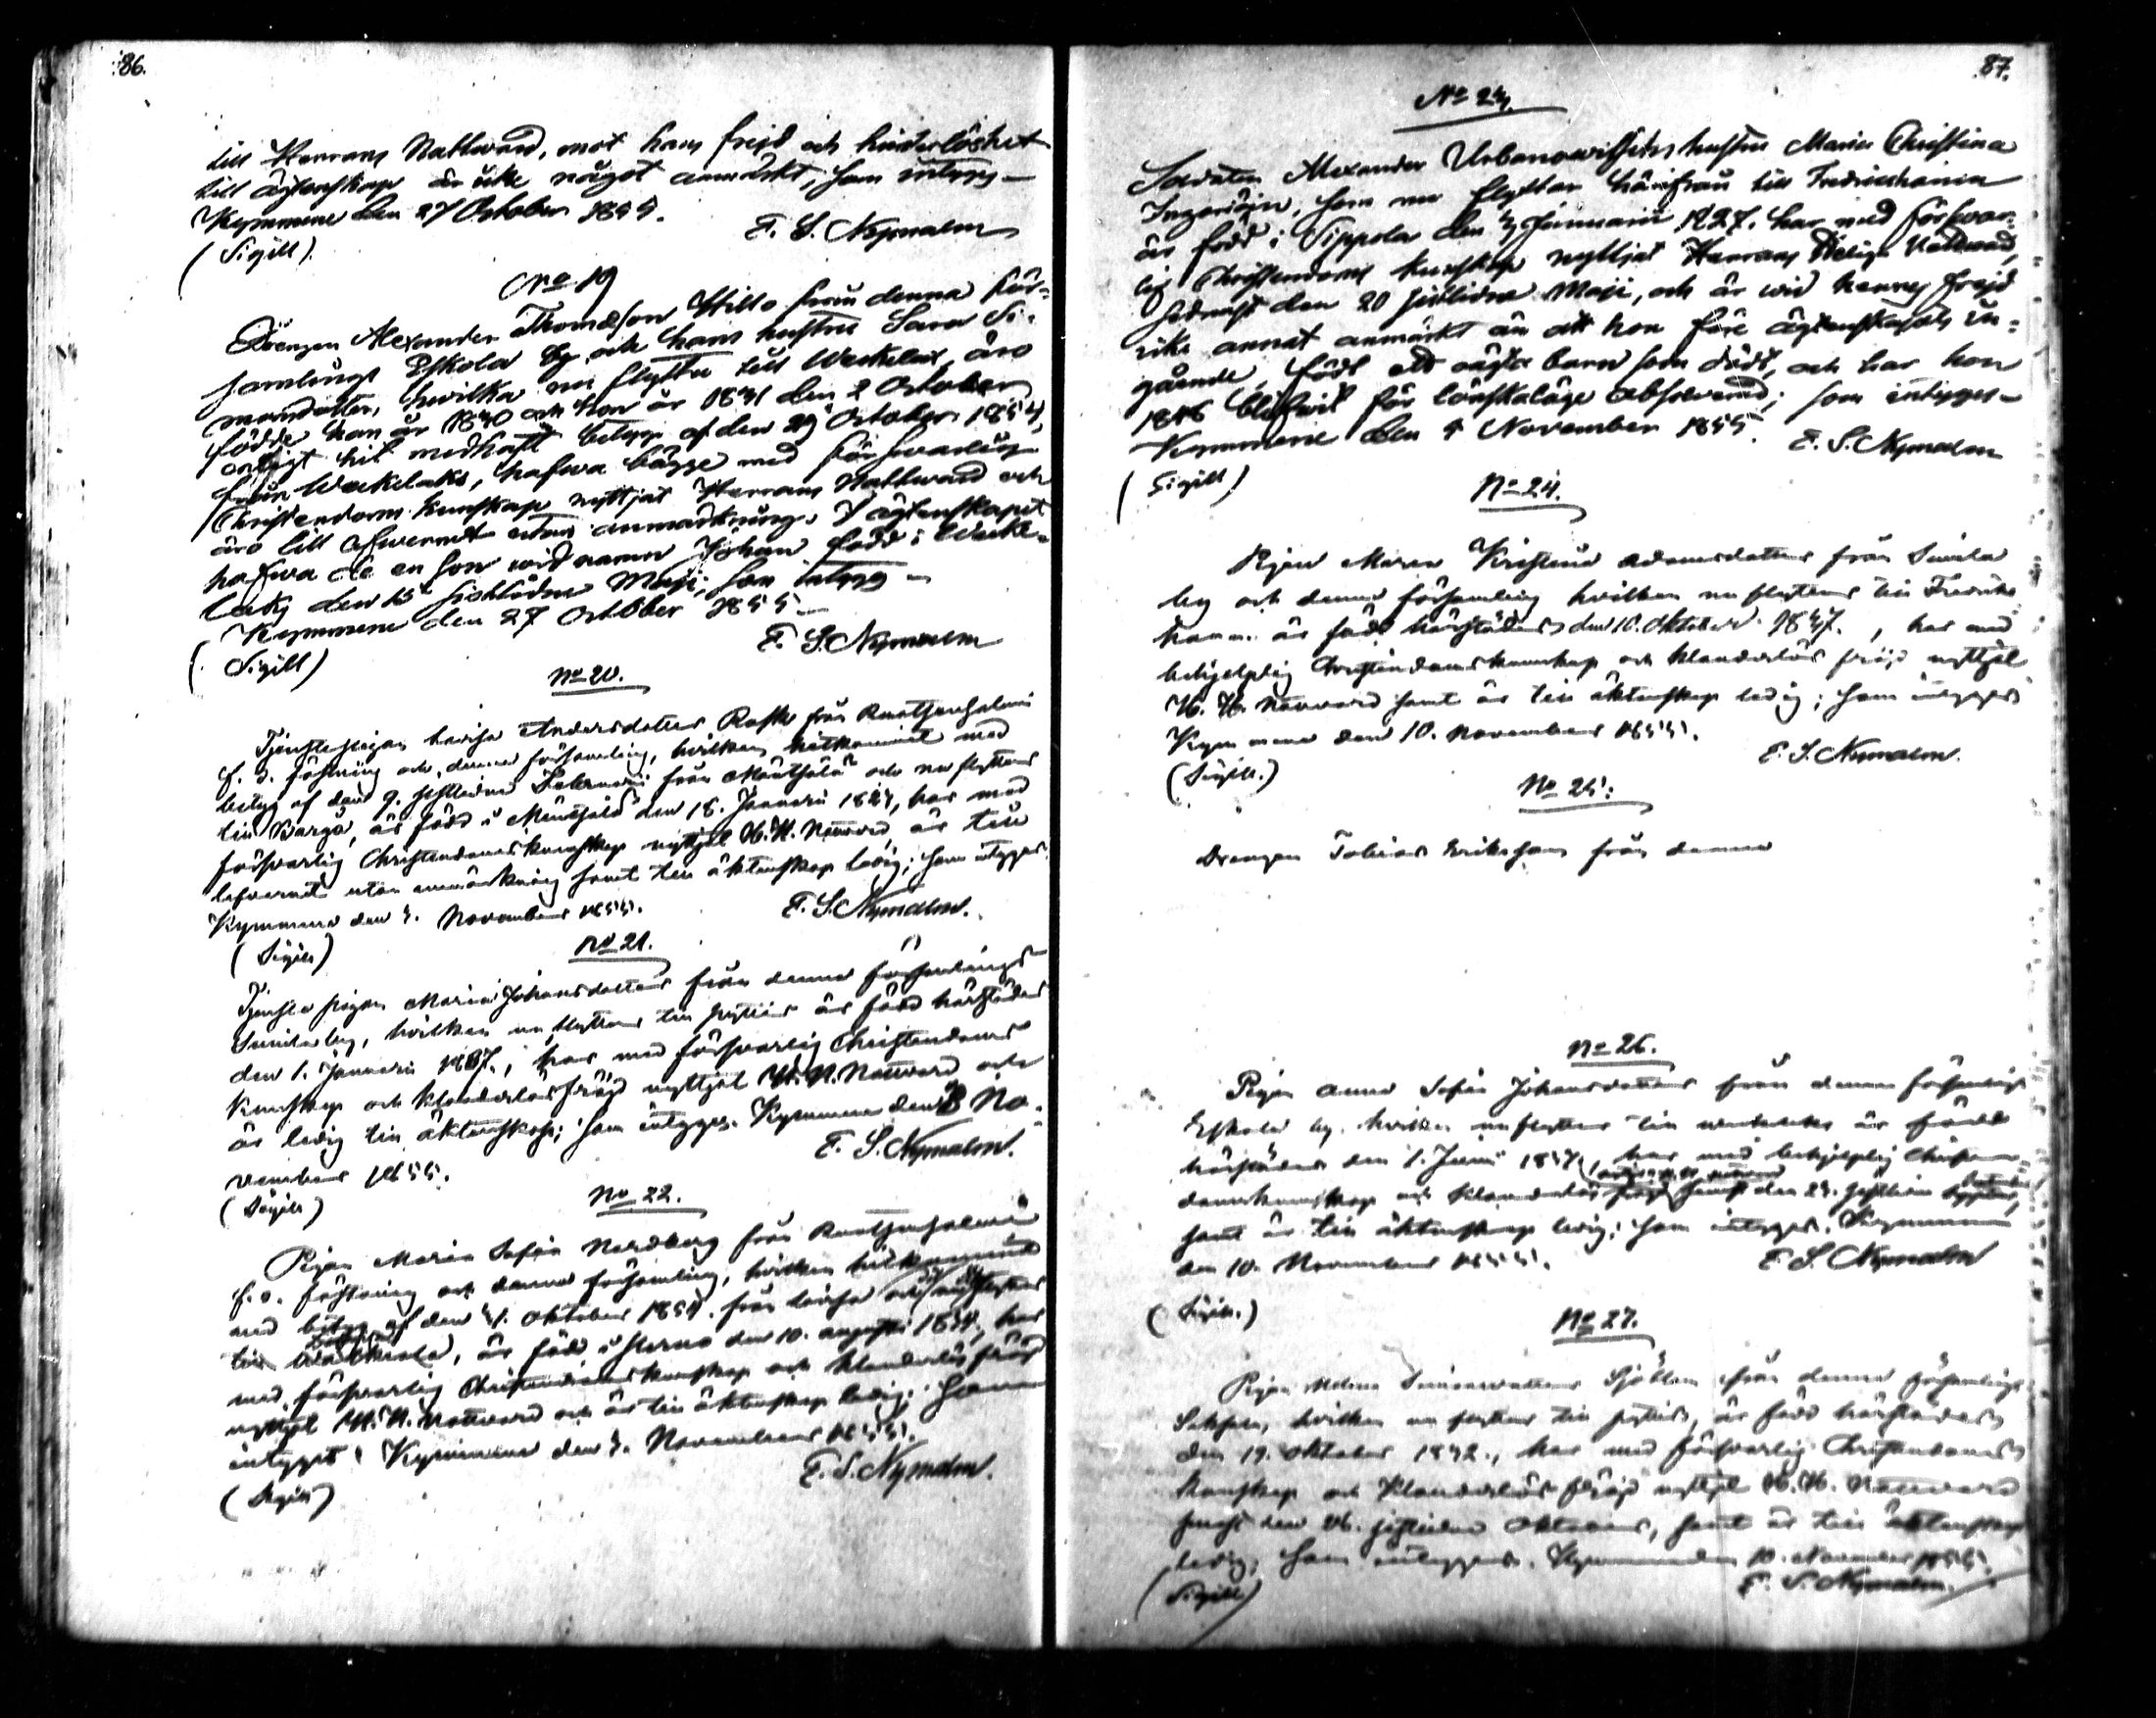 86.
till Herrans Nattward, mot hans frejd och hinderlöshet
till ägtenskap är icke något anmärkt; som intyg-
Kymmene den 27 October 1855.
E. S. Nymalm
(Sigill)
No 19
Drengen Alexander Thomasson Hillo från denna för-
samlings Eskola by och hans hustru Sara Si-
monsdotter, hwilka nu flytta till Weckelax, äro
födde han år 1830 och hon år 1831 den 2 October
enligt hit medhaft betyg af den 29 October 1854,
från Weckelaks, hafwa bägge med försvarlig
Christendoms kunskap nyttjat Herrans Nattward och
äro till lefwernet utan anmärkning. I ägtenskapet
hafwa de en son wid namn Johan född i Wecke-
laks den 15 sistlidne Maji; som intyg-
Kymmene den 27 October 1855
E. S. Nymalm
(Sigill)
No 20.
Tjenstepigan Lovisa Andersdotter Rask från Ruotsensalmi
f. d. fästning och denna församling, hvilken hitkommit med
betyg af den 9. sistlidne Februarii från Mäntsälä och nu flyttar
till Borgå, är född i Mäntsälä den 18. Januarii 1824, har med
försvarlig Christendomskunskap nyttjat H. H. Nattvard, är till
lefvernet utan anmärkning samt till äktenskap ledig; som intygas.
Kymmene den 3. November 1855.
E. S. Nymalm.
(Sigill)
No 21.
Tjenste pigan Maria Johansdotter från denna församlings
Sunila by, hvilken nu flyttar till Pyttis är född härstädes
den 1. Januarii 1837., har med försvarlig Christendoms
kunskap och klanderlös fräjd nyttjat H. H. Nattvard och
är ledig till äktenskap; som intygas. Kymmene den 8 No-
vember 1855.
E. S. Nymalm.
(Sigill)
No 22.
Pigan Maria Sofia Nordberg från Ruotsensalmi
f. d. fästning och denna församling, hvilken hitkommit
med betyg af den 1. Oktober 1854. från Lovisa och nu flyttar
till, är född i den 10. Augusti 1834., har
med försvarlig Christendomskunskap och klanderlös fräjd
nyttjat H. H. Nattvard och är till äktenskap ledig; som
intygas: Kymmene den 3. November 1855.
E. S. Nymalm.
(Sigill)
87.
No 23.
Soldaten Alexander Urbanowitschs hustru Maria Christina
, som nu flyttar härifrån till Fredrikshamn
är född i Sippola den Januarii 1827. har med förswar-
lig Christendoms kunskap nyttjat Herrans Helige Nattward,
sednast den 20 sistlidne Maji, och är wid hennes frejd
icke annat anmärkt än att hon före ägtenskapets in-
gående, födt ett oägta barn som dödt, och har hon
1846 blifwit för lönskaläge absolverad; som intyges-
Kymmene den 9 November 1855.
E. S. Nymalm
(Sigill)
No 24.
Pigan Maria Kristina Adamsdotter från Sunila
by och denna församling hvilken nu flyttar till Fredriks
hamn är född härstädes den 10. Oktober 1837., har med
behjelplig Christendomskunskap och klanderlös fräjd nyttjat
H. H. Nattvard samt är till äktenskap ledig; som intygas
Kymmene den 10. November 1855.
E. S. Nymalm.
(Sigill.)
No 25.
Drengen Tobias Eriksson från denna
No 26.
Pigan Anna Sofia Johansdotter från denna församlings
Eskola by. hvilken nu flyttar till Weckelaks är född
härstädes den 1. Junii 1837, har med behjelplig Christen-
domskunskap och klanderlös fräjd senast den 23. sistlidne
samt är till äktenskap ledig; som intygas. Kymmene
den 10. November 1855.
E. S. Nymalm
(Sigill.)
No 27.
Pigan Helena Simonsdotter Sjöblom från denna församlings
, hvilken nu flyttar till Pyttis, är född härstädes
den 19. Oktober 1832., har med försvarlig Christendoms
kunskap och klanderlös fräjd nyttjat H. H. Nattvard
senast den 16. sistlidne Oktober, samt är till äktenskap
ledig; som intygas. Kymmene den 10. November 1855.
E. S. Nymalm.
(Sigill)